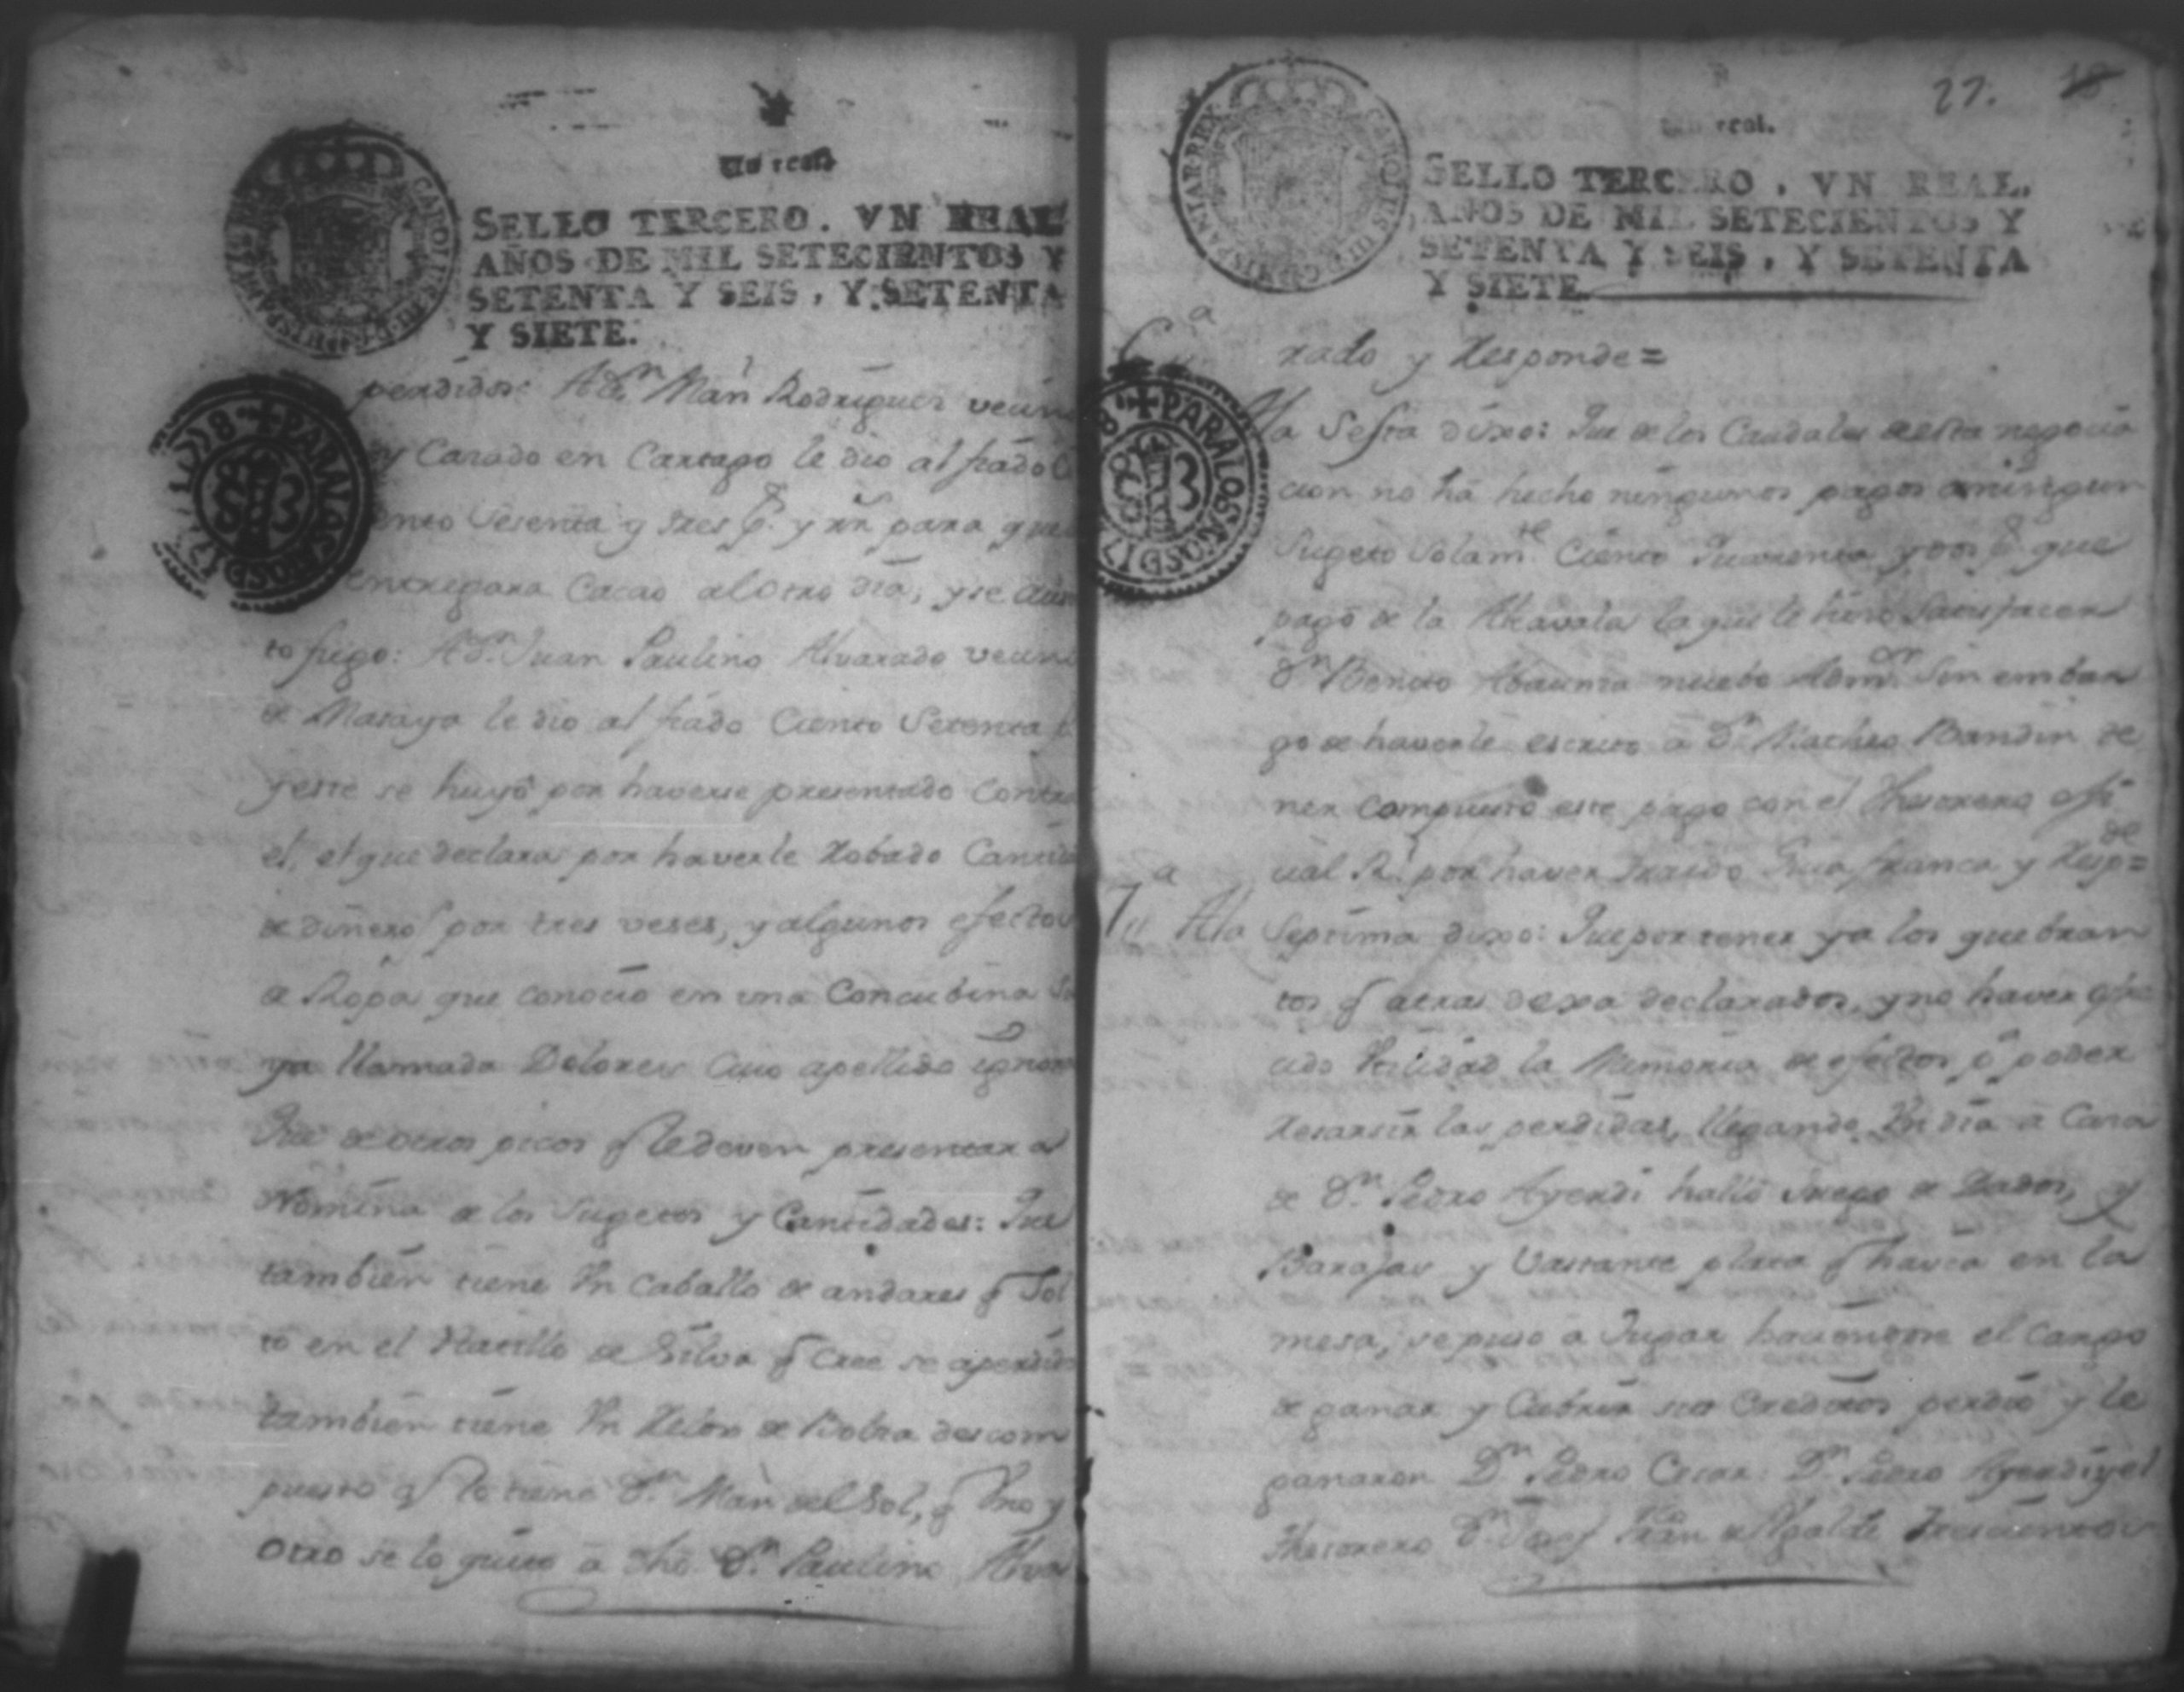 Un real
SELLO TERCERO. VN REAL
AÑOS DE MIL SETECIENTOS Y
SETENTA Y SEIS, Y SETENTA
Y SIETE.
perdidos: A Dn. Man.l Rodriguez vecino
y Casado en Cartago le dio al fiado
ento Sesenta y tres p.s y rr.s para que
entregara Cacao al Otro dia, y se aus
to fugo: A Dn. Juan Paulino Alvarado vecino
de Masaya le dio al fiado Ciento Setenta
y este se huyó por haverse presentado Contra
el, el que declara por haverle Robado Cantida
de dinero por tres veses, y algunos efectos
de Ropa que conocio en una Concubina Su
ya llamada Dolores Cuio apellido ignora
Que de otros picos q le deven presentara
Nomina de los Sugetos y Cantidades: Que
tambien tiene Un Caballo de andares q Sol
tó en el Hatillo de Silva q Cree se a perdido
tambien tiene Un Relox de Bolsa descom
puesto q lo tiene Dn. Man.l del Sol, q Uno y
Otro se lo quito a dho Dn. Paulino Alva
27. 18
real.
CAROLUS III D G HISPANIAR REX
SELLO TERCERO. VN REAL.
AÑOS DE MIL SETECIENTOS Y
SETENTA Y SEIS, Y SETENTA
Y SIETE.
rado y Responde=
PARA LOS AÑOS DI 7
6a A la Sesta dixo: Que de los Caudales de esta negocia
cion no há hecho ningunos pagos a ningun
Sugeto Solam.te Ciento Quarenta y dos p.s que
pagó de la Alcavala la que le hiso Satisfacer
Dn. Benito Abaunza nuebo Adm.or Sin embar
go de haverle escrito a Dn. Matheo Bandin te
ner Compuesto este pago con el Thesorero ofi
cial R.l por haver traido Guia franca y Resp.de=
7a A la Septima dixo: Que por tener ya los quebran
tos q atras dexa declarados, y no haver ofre
cido Utilidad la Memoria de efectos p.a poder
Resarcir las perdidas, llegando Un dia a Casa
de Dn. Pedro Ayerdi halló Juego de Dados, y
Barajas y Vastante plata q havia en la
mesa, se puso a Jugar haciendose el Cargo
de ganar y Cubrir sus Creditos perdió y le
ganaron Dn. Pedro Cesar: Dn. Pedro Ayerdi y el
Thesorero Dn. Josef Fran.co Ugalde trescientos